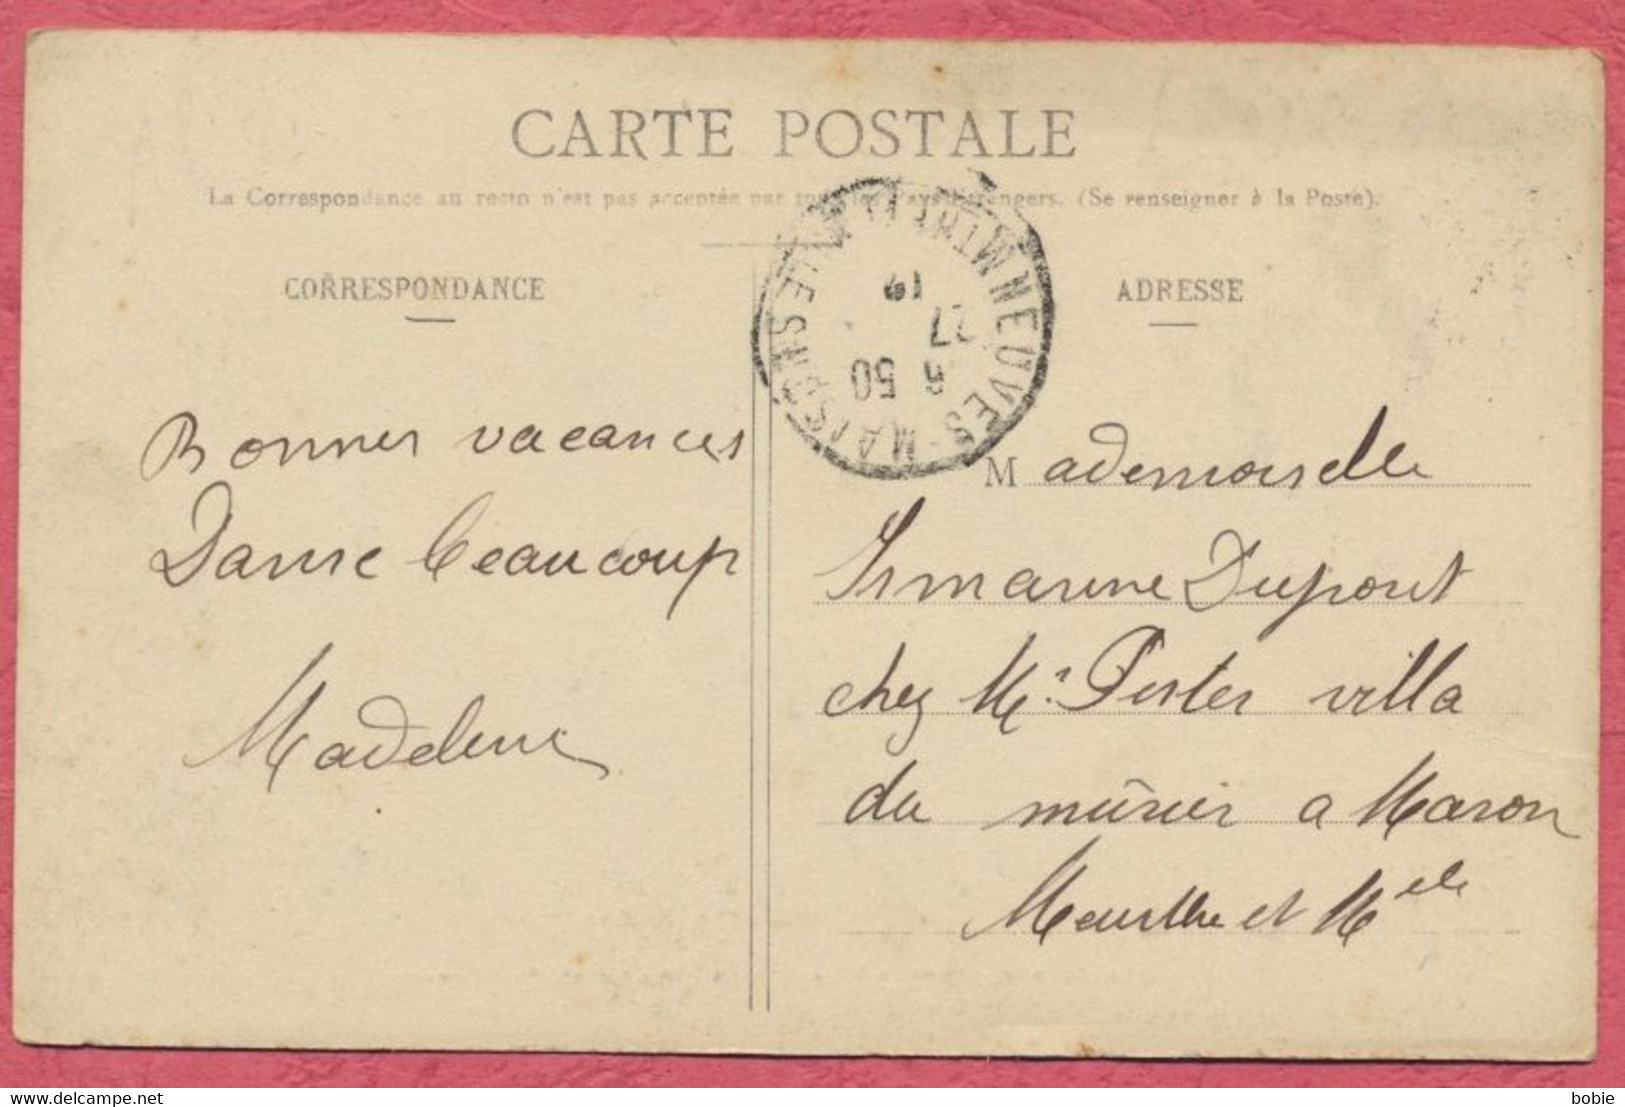 CARTE POSTALE
La Correspondance au recto n'est pas acceptée par tous les Pays Etrangers. (Se renseigner à la Poste).
CORRESPONDANCE
ADRESSE
NEUVES-MAISONS
19
50
Bonnes vacances
Danse beaucoup
Madeleine
Mademoiselle
Dupont
chez Mr. villa
du mûrier a Maron
Meurthe et Melle
www.delcampe.net
bobie